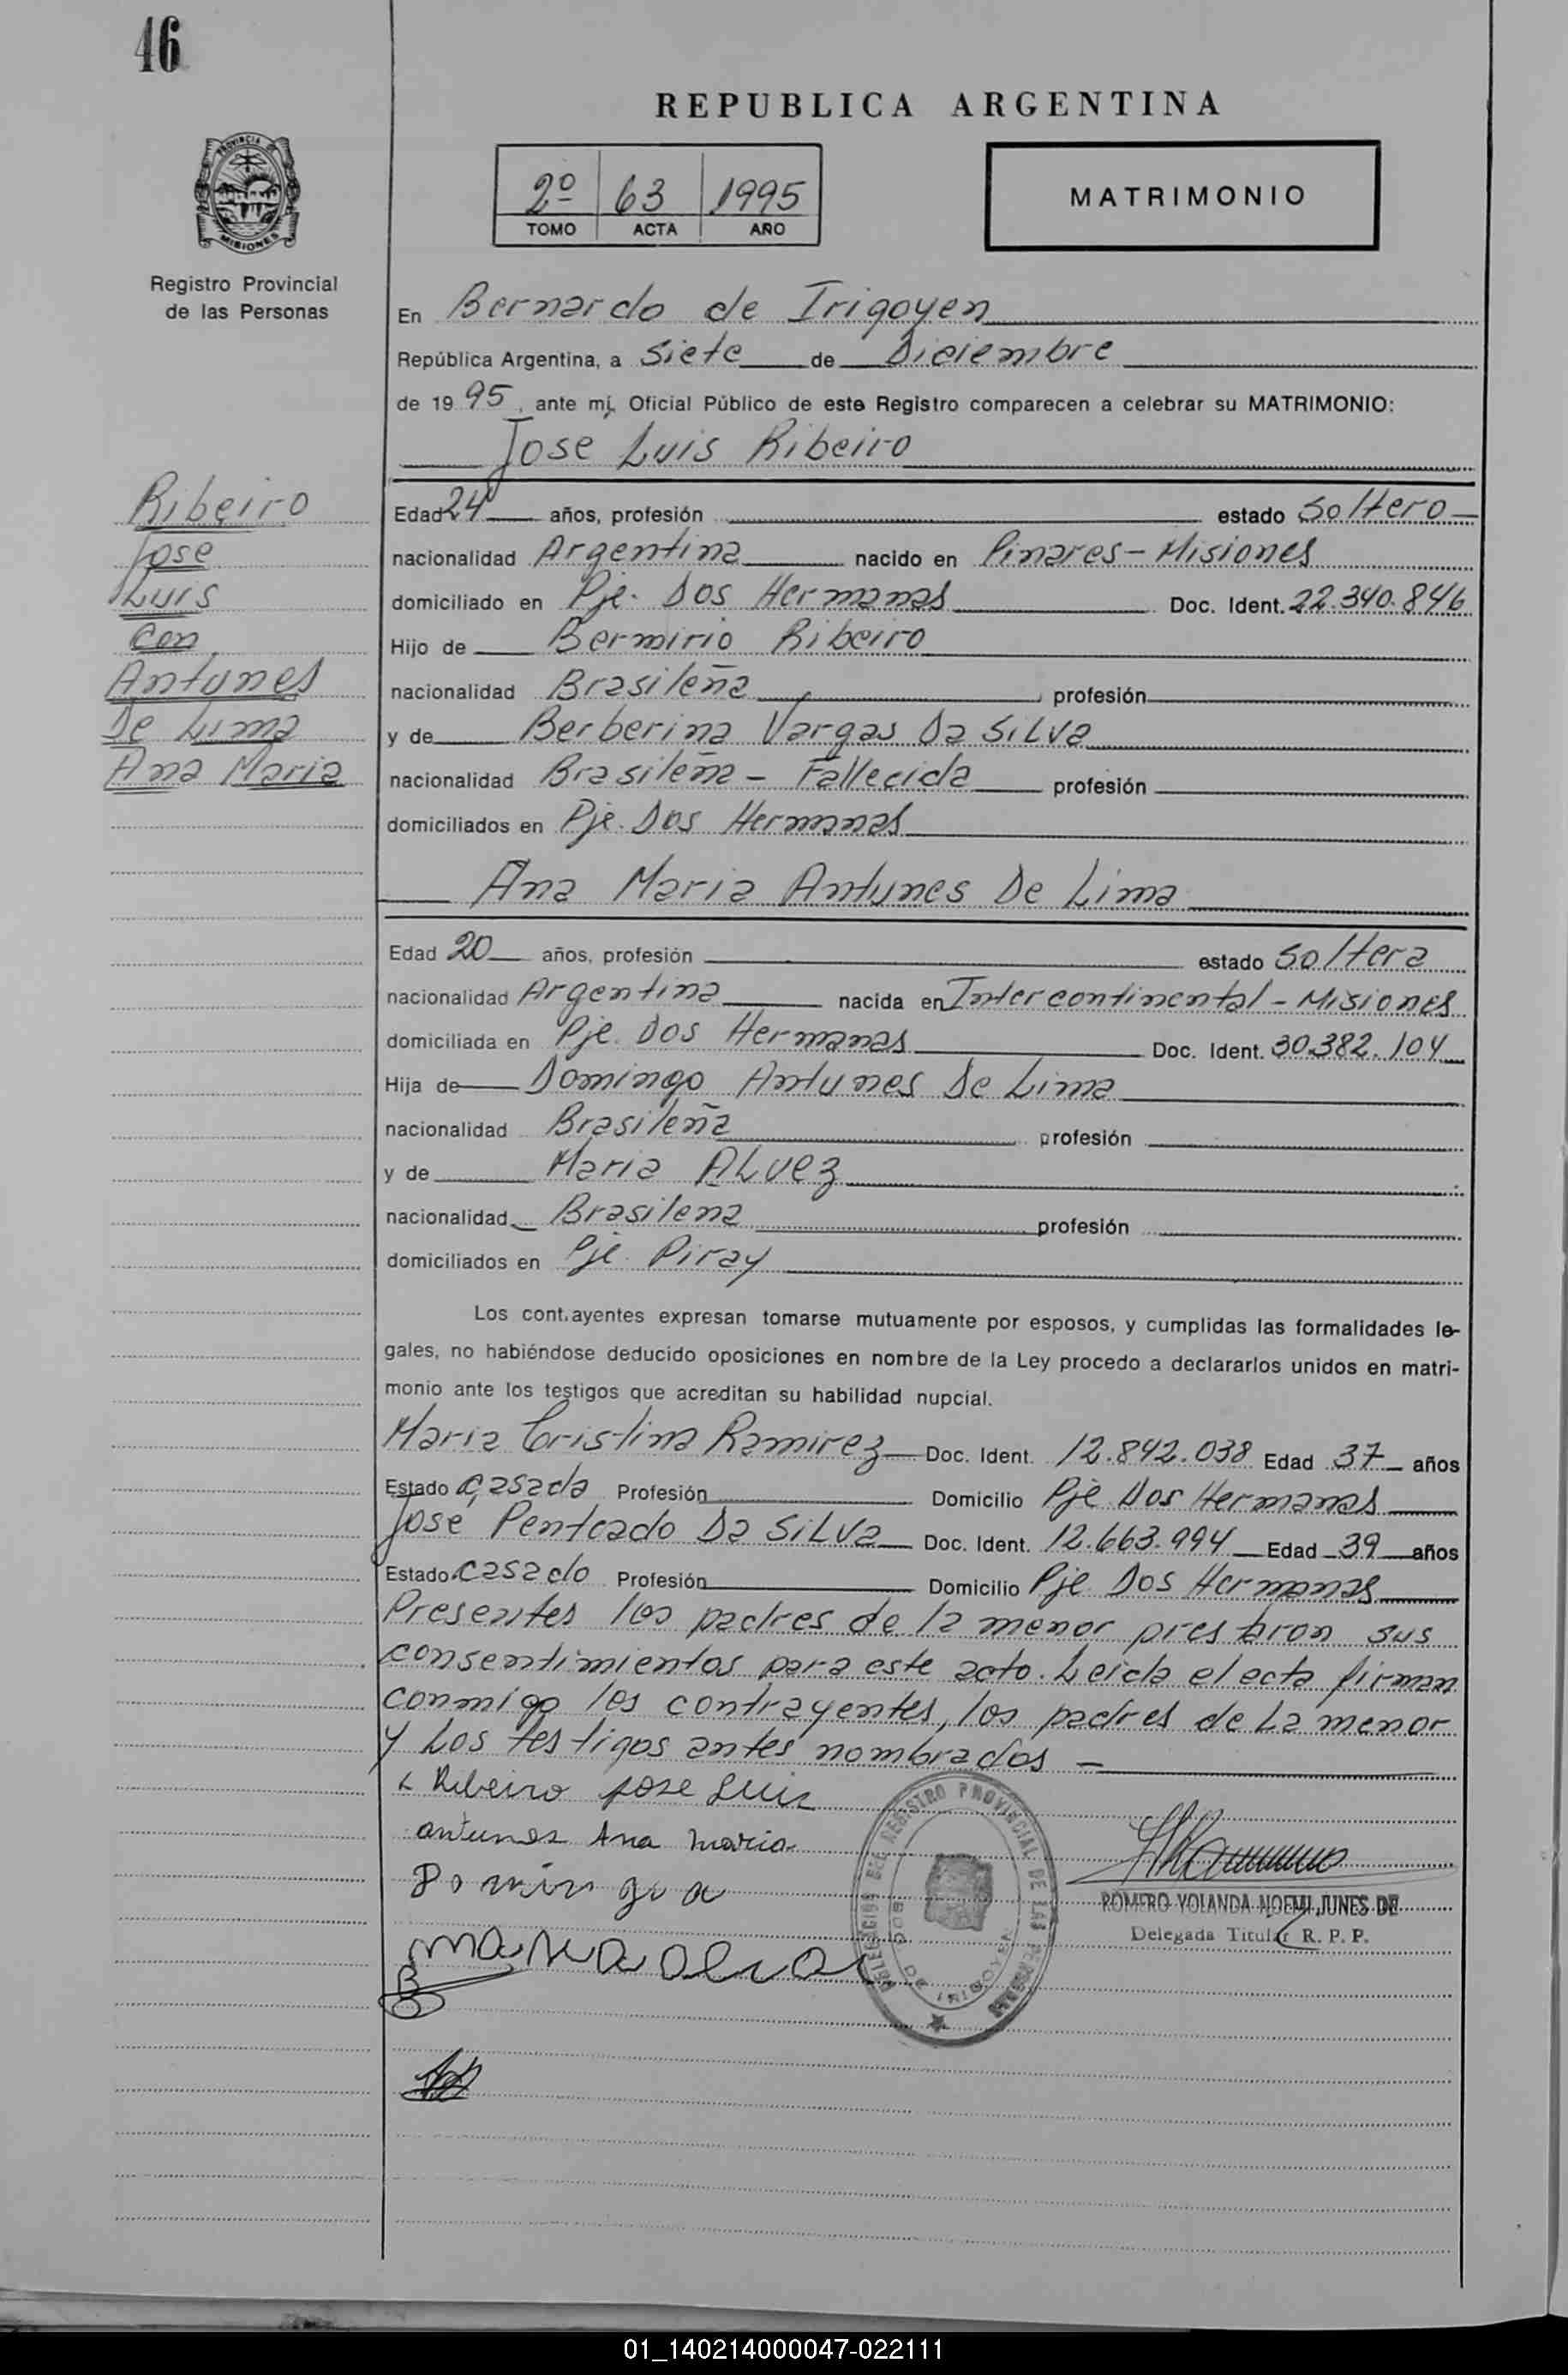 46
REPUBLICA ARGENTINA
PROVINCIA DE
MISIONES
2º 63 1995
TOMO ACTA AÑO
MATRIMONIO
Registro Provincial
de las Personas
En Bernardo de Irigoyen
República Argentina, a Siete de Diciembre
de 1995, ante mí, Oficial Público de este Registro comparecen a celebrar su MATRIMONIO:
Jose Luis Ribeiro
Ribeiro
Jose
Luis
Con
Antunes
De Lima
Ana Maria
Edad 24 años, profesión estado Soltero
nacionalidad Argentina nacido en Pinares - Misiones
domiciliado en Pje. Dos Hermanas Doc. Ident. 22.340.846
Hijo de Bermirio Ribeiro
nacionalidad Brasileña profesión
y de Berberina Vargas Da Silva
nacionalidad Brasileña - Fallecida profesión
domiciliados en Pje. Dos Hermanas
Ana Maria Antunes De Lima
Edad 20 años, profesión estado Soltera
nacionalidad Argentina nacida en Intercontinental - Misiones
domiciliada en Pje. Dos Hermanas Doc. Ident. 30.382.104
Hija de Domingo Antunes De Lima
nacionalidad Brasileña profesión
y de Maria Alvez
nacionalidad Brasilena profesión
domiciliados en Pje. Piray
Los contrayentes expresan tomarse mutuamente por esposos, y cumplidas las formalidades le-
gales, no habiéndose deducido oposiciones en nombre de la Ley procedo a declararlos unidos en matri-
monio ante los testigos que acreditan su habilidad nupcial.
Maria Cristina Ramirez Doc. Ident. 12.842.038 Edad 37 años
Estado casada Profesión Domicilio Pje Dos Hermanas
Jose Penteado Da Silva Doc. Ident. 12.663.994 Edad 39 años
Estado casado Profesión Domicilio Pje Dos Hermanas
Presentes los padres de la menor prestaron sus
consentimientos para este acto. Leida el acta firman
conmigo los contrayentes, los padres de la menor
y los testigos antes nombrados -
Ribeiro Jose Luis
antunes Ana maria
DELEGACION DEL REGISTRO PROVINCIAL DE LAS PERSONAS
DE IRIGOYEN
ROMERO YOLANDA NOEMI JUNES DE
Delegada Titular R. P. P.
01_140214000047-022111